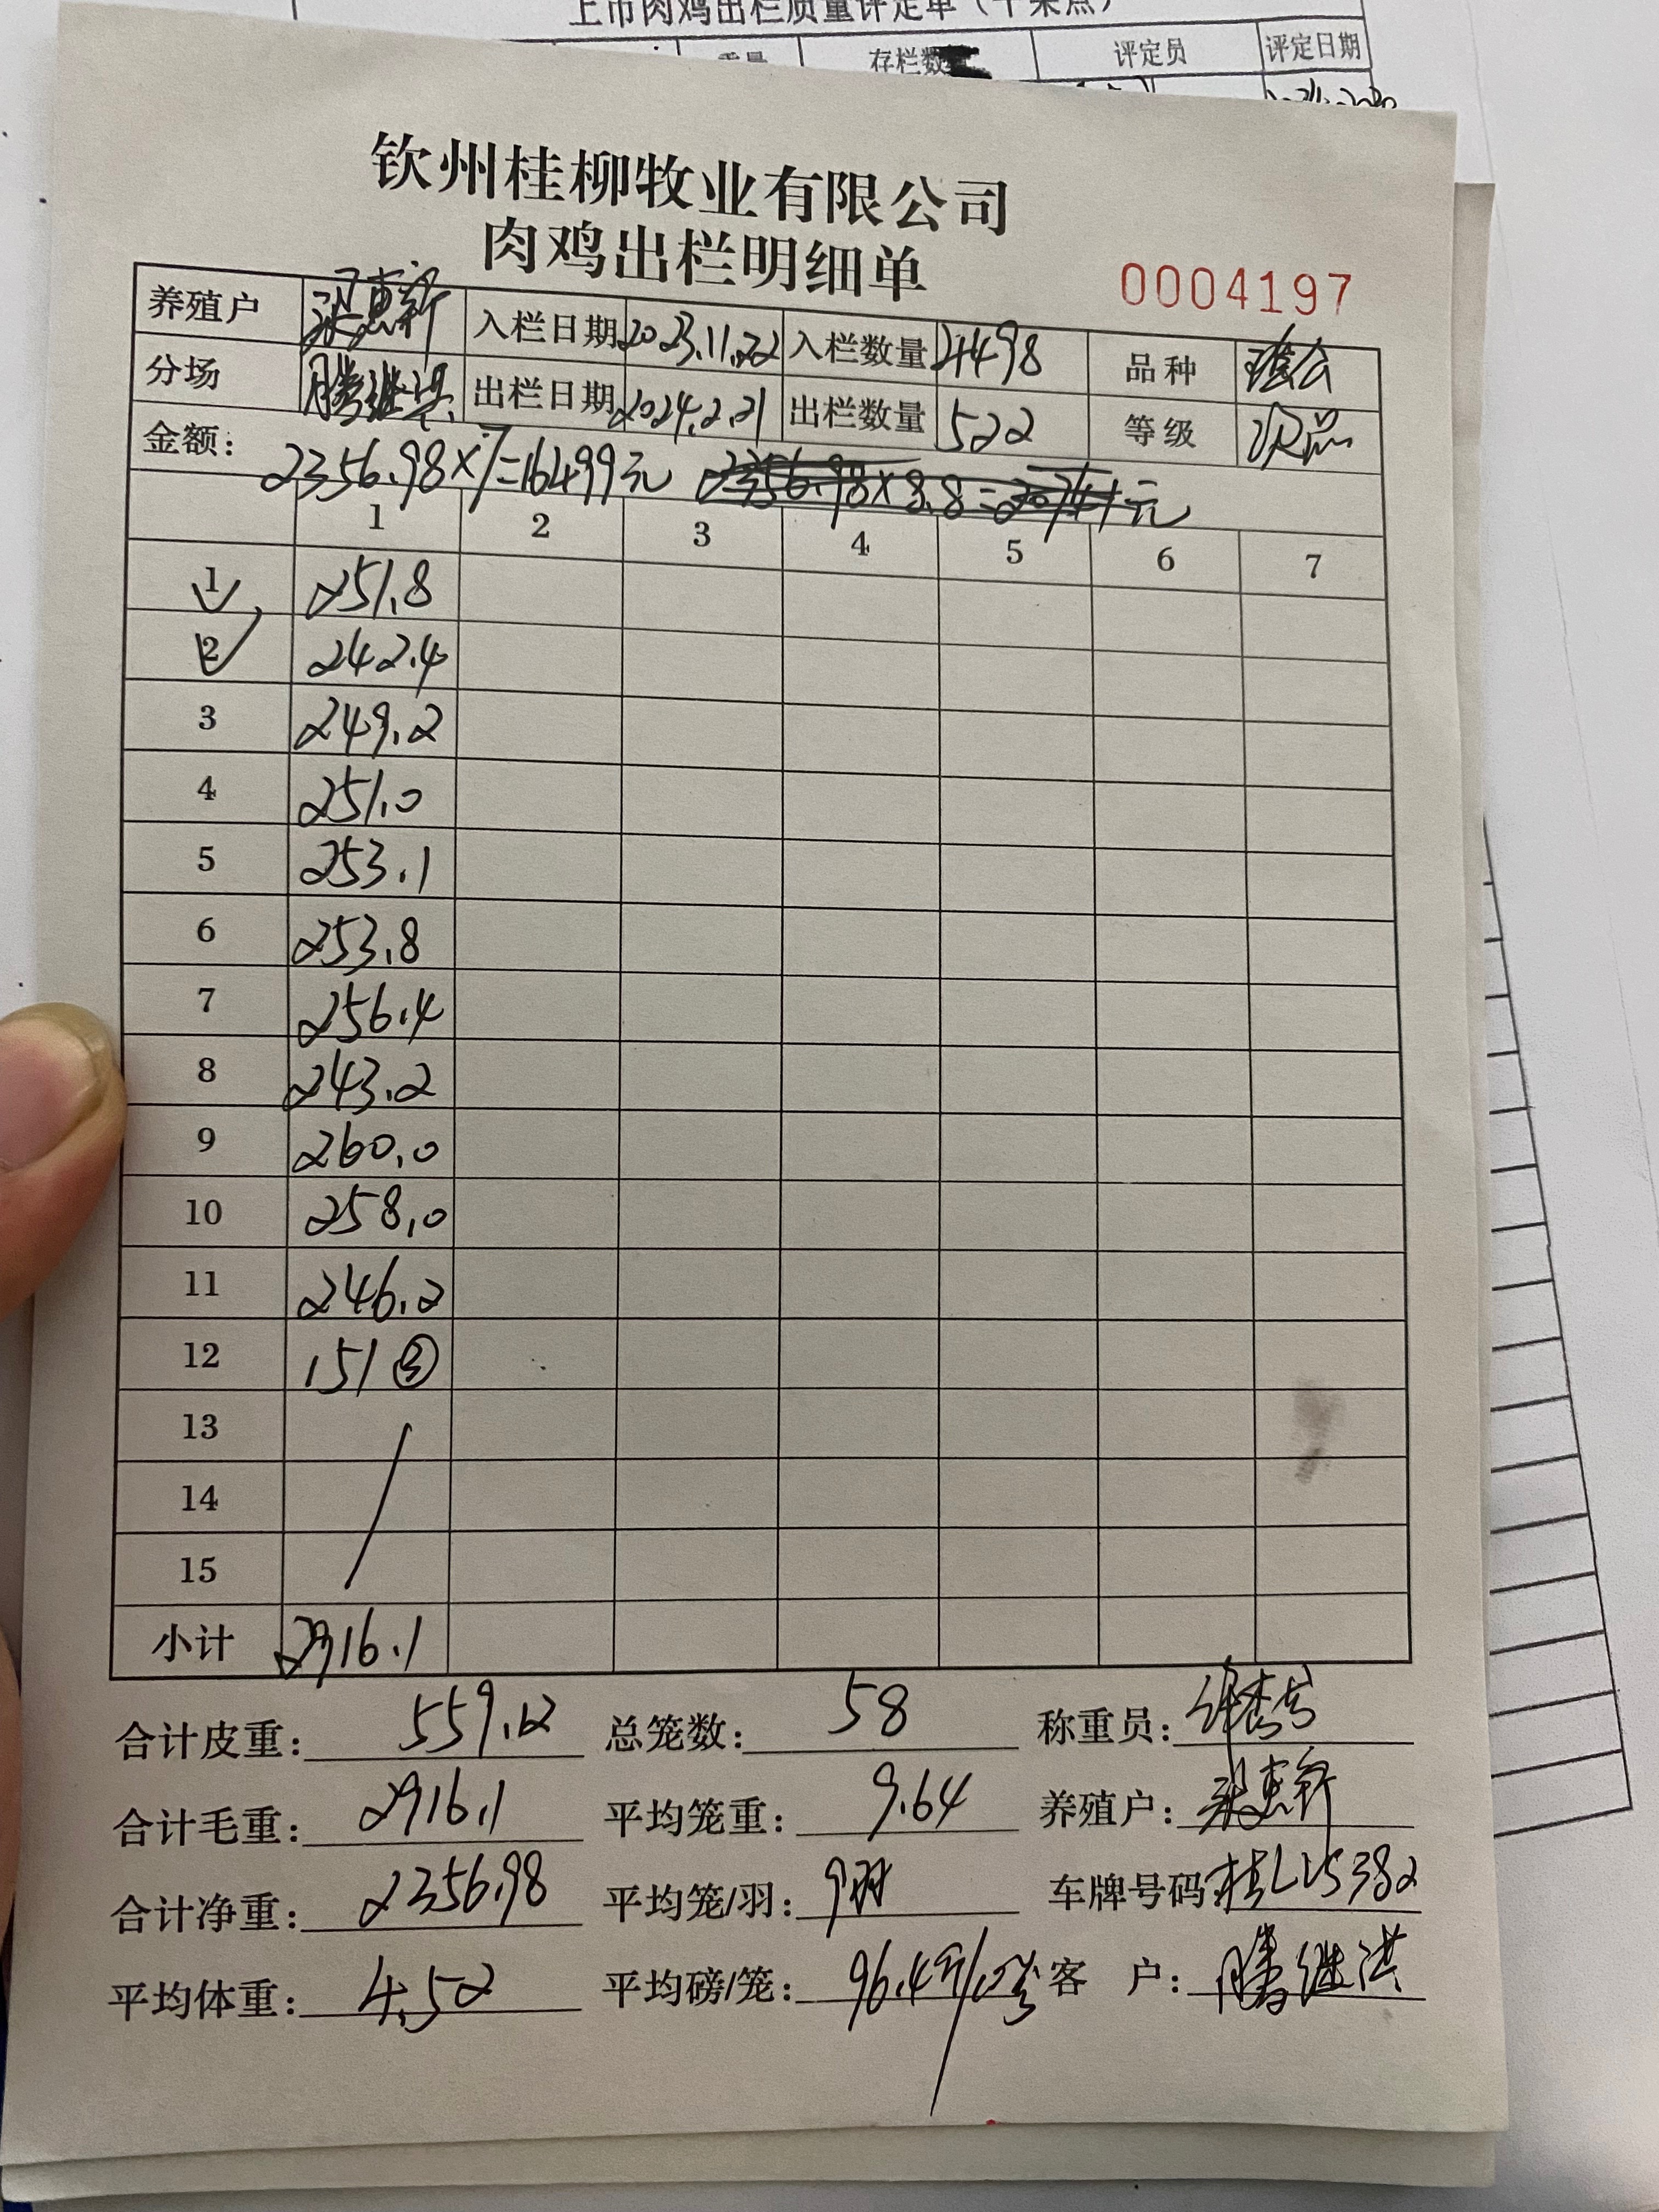 上市肉鸡出栏质量评定单（千荣点）
重量 存栏数 评定员 评定日期
钦州桂柳牧业有限公司
肉鸡出栏明细单
0004197
养殖户 梁惠新 入栏日期 2023.11.22 入栏数量 4498 品种
分场 腾继洪 出栏日期 2024.2.21 出栏数量 522 等级 次品
金额: 2356.98×7=16499元 2356.98×8.8=20741元
1 2 3 4 5 6 7
1 251.8
2 242.4
3 249.2
4 251.0
5 253.1
6 253.8
7 256.4
8 243.2
9 260.0
10 258.0
11 246.2
12 151 ③
13
14
15
小计 2916.1
合计皮重: 559.12 总笼数: 58 称重员:
合计毛重: 2916.1 平均笼重: 9.64 养殖户: 梁惠新
合计净重: 2356.98 平均笼/羽: 9羽 车牌号码: 桂LV5382
平均体重: 4.52 平均磅/笼: 96.4斤/笼 客 户: 腾继洪